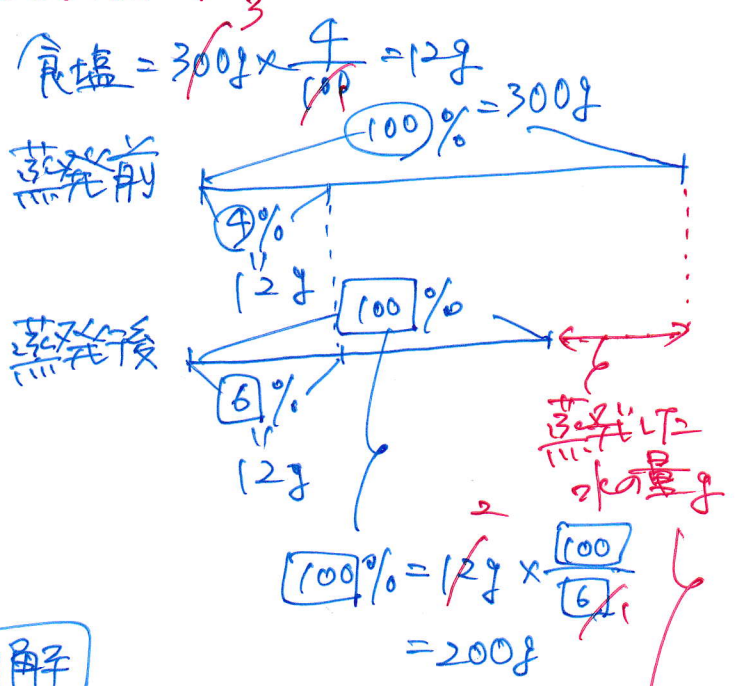 食塩 = 300g × 4/100 = 12g
3
100% = 300g
蒸発前
4%
12g
100%
蒸発後
6%
12g
蒸発した
水の量g
2
100% = 12g × 100/6
1
= 200g
解